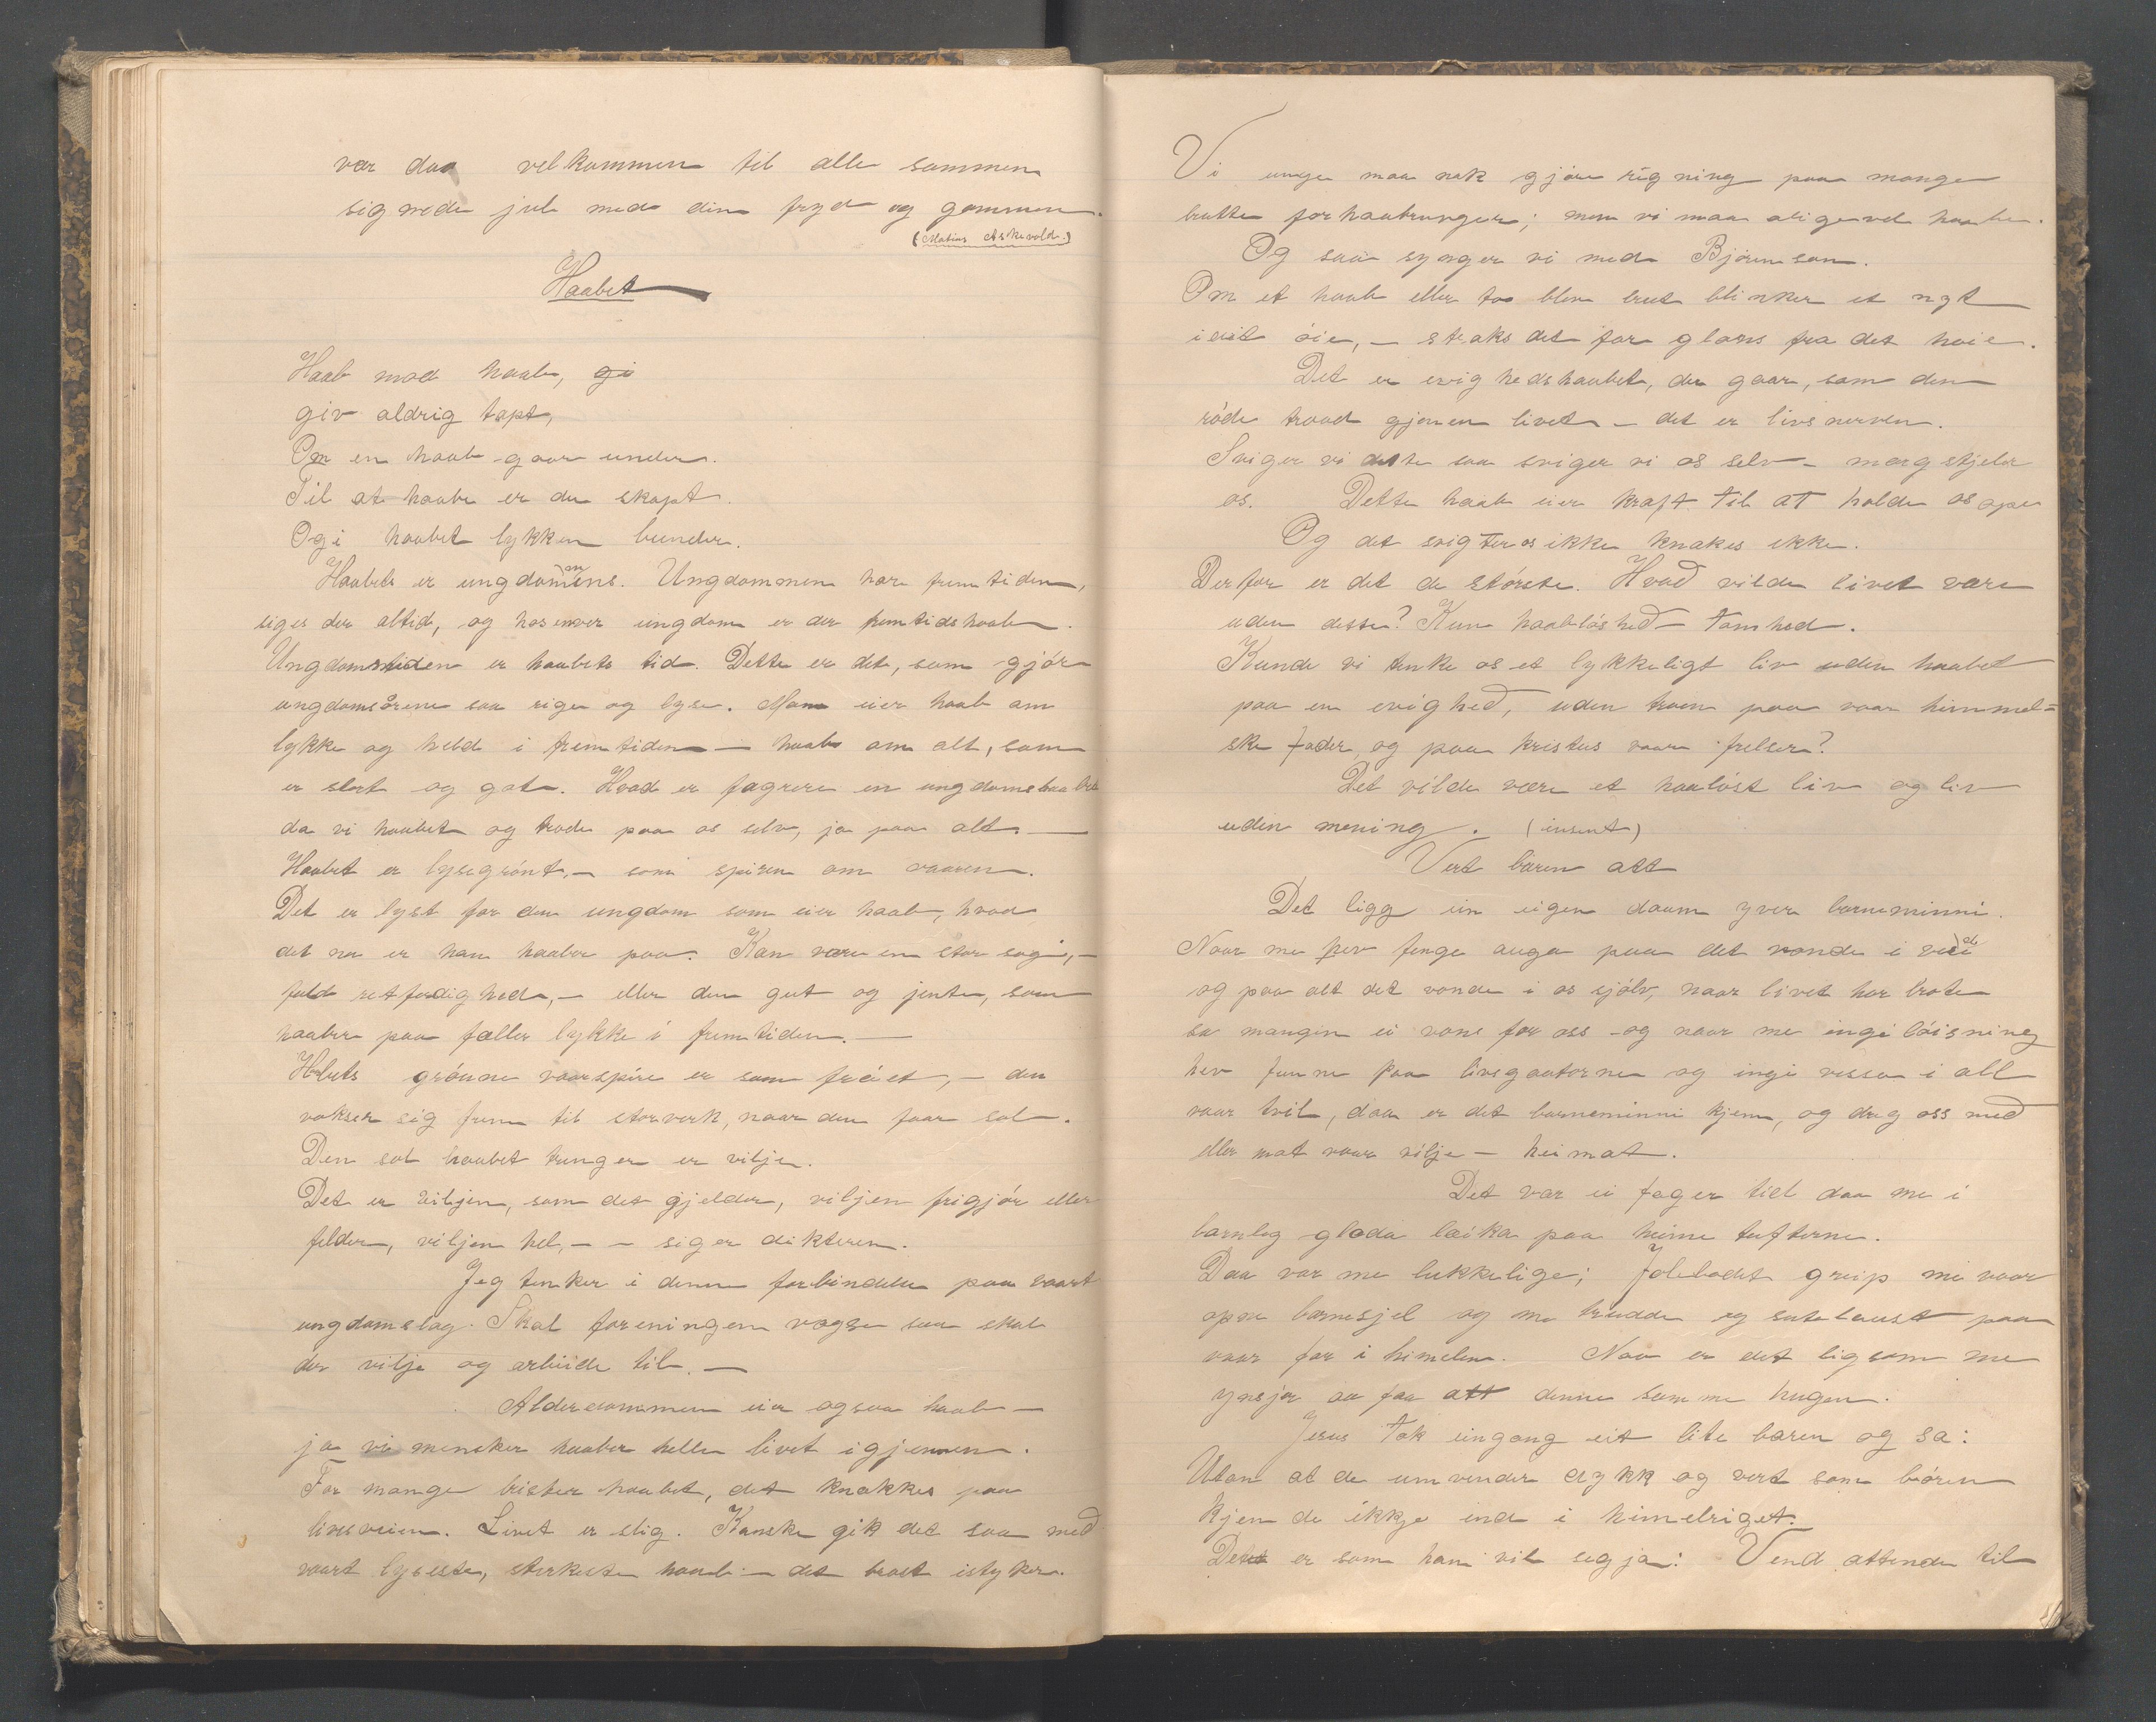 vær daa velkommen til alle sammen
signede jul med din fryd og gammen.
(Matias Askevold.)
Haabet
Haab mod haab, gi
giv aldrig tapt,
Om en haab gaar under.
Til at haabe er du skapt.
Og i haabet lykken bunder.
Haabets er ungdommens. Ungdommen har fremtiden,
siges der altid, og hos enver ungdom er der fremtidshaab.
Ungdomstiden er haabets tid. Dette er det, som gjór
ungdomsårene saa rige og lyse. Man eier haab om
lykke og held i fremtiden — haab om alt, som
er stort og got. Hvad er fagrere en ungdomshaabet
da vi haabet og trode paa os selv, ja paa alt. —
Haabet er lysegrónt, — som spiren om vaaren.
Det er lyst for den ungdom som eier haab, hvad
det na er han haaber paa. Kan være en stor sag, —
fuld retferdighed, — eller den gut og jente, som
haaber paa fælles lykke i fremtiden. —
Habets grónne vaarspire er som fróet, — den
vokser sig frem til storverk, naar den faar sol.
Den sol haabet trenger er vilje.
Det er viljen, som det gjelder, viljen frigjór eller
felder, viljen hel, — — siger dikteren.
Jeg tenker i denne forbindelse paa vaart
ungdomslag. Skal foreningen vogse saa skal
der vilje og arbeide til. —
Alderdommen eier ogsaa haab —
ja vi mensker haaber hele livet igjennem.
For mange brister haabet, det knækkes paa
livsveien. Livet er slig. Kanske gik det saa med
vaart lyseste, sterkeste haab — det brast istyker.
Vi unge maa nok gjóre rigning paa mange
brutte forhaabninger; men vi maa aligevel haabe.
Og saa synger vi med Bjórnson.
Om et haab eller to blev brut blinker et nyt
i dit óie, — straks det far glans fra det hóie.
Det er evighedshaabet, der gaar, som den
róde traad gjenem livet — det er livsnerven.
Sviger vi dette saa sviger vi os selv — margstjeler
os. Dette haab eier kraft til at holde os ope
Og det svigter os ikke knakes ikke.
Derfor er det de stórste. Hvad vilde livet være
uden desse? Kun haablóshed — tomhed.
Kunde vi tenke os et lykkeligt liv uden haabet
paa en evighed, uden troen paa vaar himmel=
ske fader, og paa kristus vaar frelser?
Det vilde være et haalóst liv og liv
uden mening. (insent)
Vert baren att
Det ligg ein eigen daam yver barneminni.
Naar me hev fenge auga paa det vonde i verdi
og paa alt det vonde i os sjólv, naar livet har brote
so mangin ei von for oss — og naar me ingi lóisning
hev funne paa livsgaatorne og ingi vissa i all
vaar tvil, daa er det barneminni kjem, og dreg oss med
eller mot vaar vilje — heimat.
Det var ei fager tid daa me i
barnleg glæda læika paa heime tufterne.
Daa var me lukkelige; Jolebodet greip me vaar
opne barnesjel og me trudde og sutelaust paa
vaar far i himelen. Noo er det ligsom me
ynsja aa faa att denne samme hugen.
Jesus tok eingong eit lite baren og sa:
Uton at de umvender dykk og vert som bóren
kjem de ikkje inn i himelriget.
Det er som han vil segja: Vend attende til